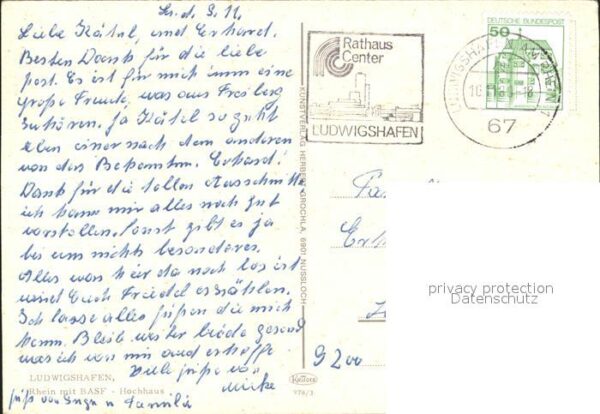 Lu. d. 9. 11.
Liebe Kätel, und Erhard.
Besten Dank für die liebe
post. Es ist für mich imm eine
große Freude, was aus Freiberg
zuhören. Ja Kätel so geht
eben einer nach dem anderen
von den Bekanntn. Erhard!
Dank für die tollen Ausschnitte
ich kann mir alles noch gut
vorstellen. Sonst gibt es ja
bei uns nichts besonderes.
Alles was hier da noch los ist
wird Euch Friedel erzählen.
Ich lasse alles grüßen die mich
kenn. Bleib weiter beide gesund
was ich von mir auch erhoffe
Viele grüße von
grüß von Inge u Familie
LUDWIGSHAFEN,
Rhein mit BASF - Hochhaus
KUNSTVERLAG HERBERT GROCHLA, 6901 NUSSLOCH
Rathaus
Center
LUDWIGSHAFEN
LUDWIGSHAFEN AM RHEIN 1
67
DEUTSCHE BUNDESPOST
50
Fa
Erh
9200
privacy protection
Datenschutz